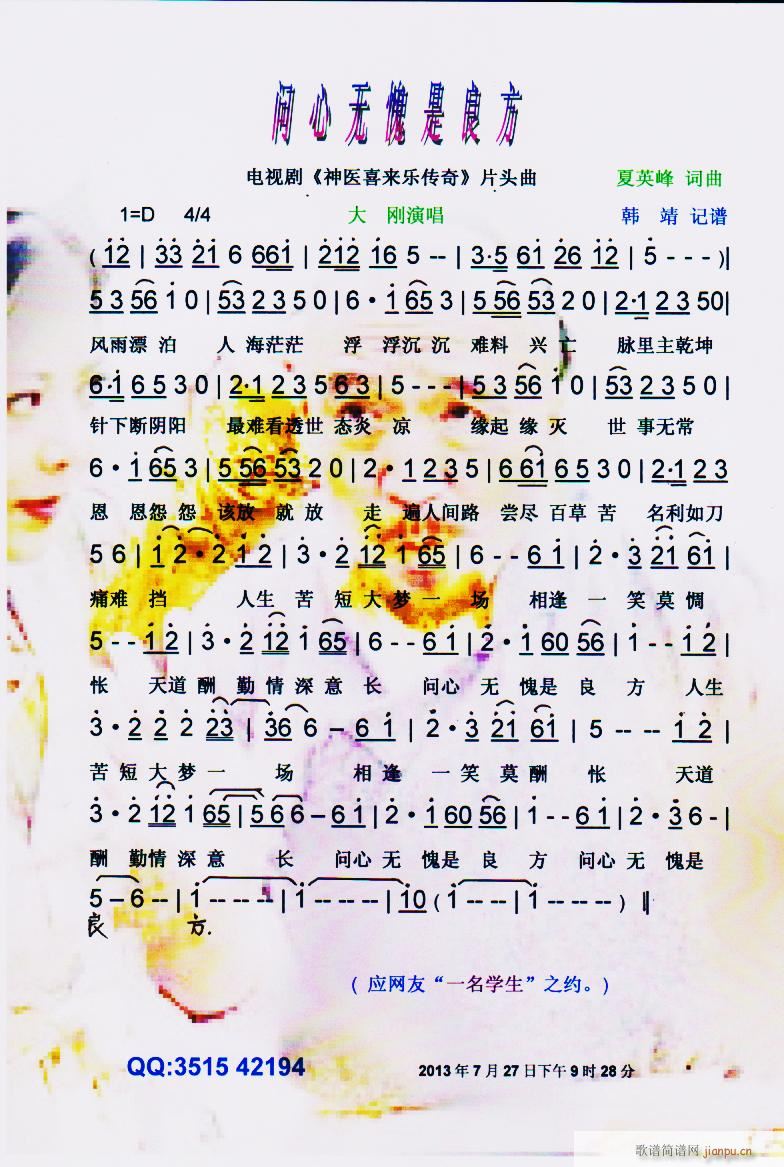 问心无愧是良方
电视剧《神医喜来乐传奇》片头曲 夏英峰 词曲
1=D 4/4 大 刚演唱 韩 靖 记谱
( 12 | 33 21 6 661 | 212 16 5 -- | 3·5 61 26 12 | 5 - - - )|
5 3 56 1 0 | 53 2 3 5 0 | 6 · 1 65 3 | 5 56 53 2 0 | 2·1 2 3 50|
风雨漂 泊 人 海茫茫 浮 浮沉 沉 难料 兴 亡 脉里主乾坤
6·1 6 5 3 0 | 2·1 2 3 5 6 3 | 5 - - - | 5 3 56 1 0 | 53 2 3 5 0 |
针下断阴阳 最难看透世 态炎 凉 缘起 缘 灭 世 事无常
6 · 1 65 3 | 5 56 53 2 0 | 2 · 1 2 3 5 | 6 61 6 5 3 0 | 2·1 2 3
恩 恩怨 怨 该放 就 放 走 遍人间路 尝尽 百草 苦 名利如刀
5 6 | 1 2 · 2 1 2 | 3 · 2 12 1 65 | 6 - - 6 1 | 2 · 3 21 61 |
痛难 挡 人生 苦 短大梦 一 场 相逢 一 笑莫 惆
5 - - 1 2 | 3 · 2 12 1 65 | 6 - - 6 1 | 2 · 1 60 56 | 1 - - 1 2 |
怅 天道 酬 勤情 深意 长 问心 无 愧是 良 方 人生
3 · 2 2 2 23 | 36 6 – 6 1 | 2 · 3 21 61 | 5 -- -- 1 2 |
苦 短大梦 一 场 相逢 一 笑 莫酬 怅 天道
3 · 2 12 1 65 | 5 66 – 6 1 | 2 · 1 60 56 | 1 - - 6 1 | 2 · 3 6 - |
酬 勤情 深意 长 问心 无 愧是 良 方 问心 无 愧是
5 – 6 -- | 1 -- -- | 1 -- -- | 10 ( 1 -- -- | 1 -- -- ) ‖
良 方.
( 应网友“一名学生”之约。)
QQ:3515 42194 2013 年 7 月 27 日下午 9 时 28 分
歌谱简谱网 jianpu.cn